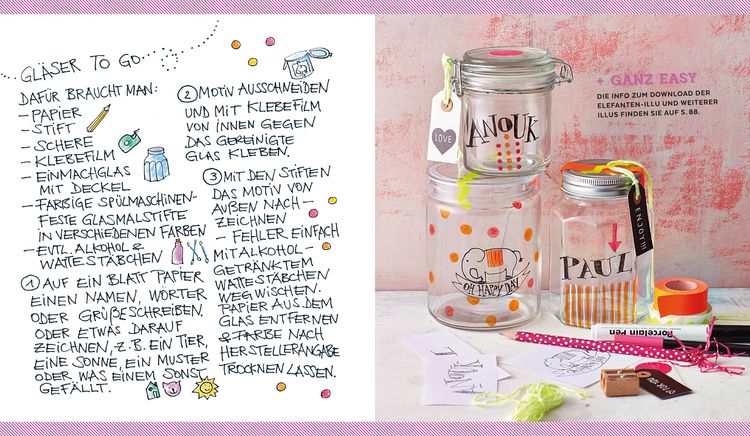 GLÄSER TO GO
DAFÜR BRAUCHT MAN:
– PAPIER
– STIFT
– SCHERE
– KLEBEFILM
– EINMACHGLAS
MIT DECKEL
– FARBIGE SPÜLMASCHINEN-
FESTE GLASMALSTIFTE
IN VERSCHIEDENEN FARBEN
– EVTL. ALKOHOL &
WATTESTÄBCHEN
① AUF EIN BLATT PAPIER
EINEN NAMEN, WÖRTER
ODER GRÜßE SCHREIBEN
ODER ETWAS DARAUF
ZEICHNEN, Z.B. EIN TIER,
EINE SONNE, EIN MUSTER
ODER WAS EINEM SONST
GEFÄLLT.
② MOTIV AUSSCHNEIDEN
UND MIT KLEBEFILM
VON INNEN GEGEN
DAS GEREINIGTE
GLAS KLEBEN.
③ MIT DEN STIFTEN
DAS MOTIV VON
AUßEN NACH-
ZEICHNEN
– FEHLER EINFACH
MIT ALKOHOL-
GETRÄNKTEM
WATTESTÄBCHEN
WEGWISCHEN.
PAPIER AUS DEM
GLAS ENTFERNEN
& FARBE NACH
HERSTELLERANGABE
TROCKNEN LASSEN.
+ GANZ EASY
DIE INFO ZUM DOWNLOAD DER
ELEFANTEN-ILLU UND WEITERER
ILLUS FINDEN SIE AUF S. 88.
LOVE
ANOUK
ENJOY!!!
PAUL
OH HAPPY DAY
Porcelain Pen